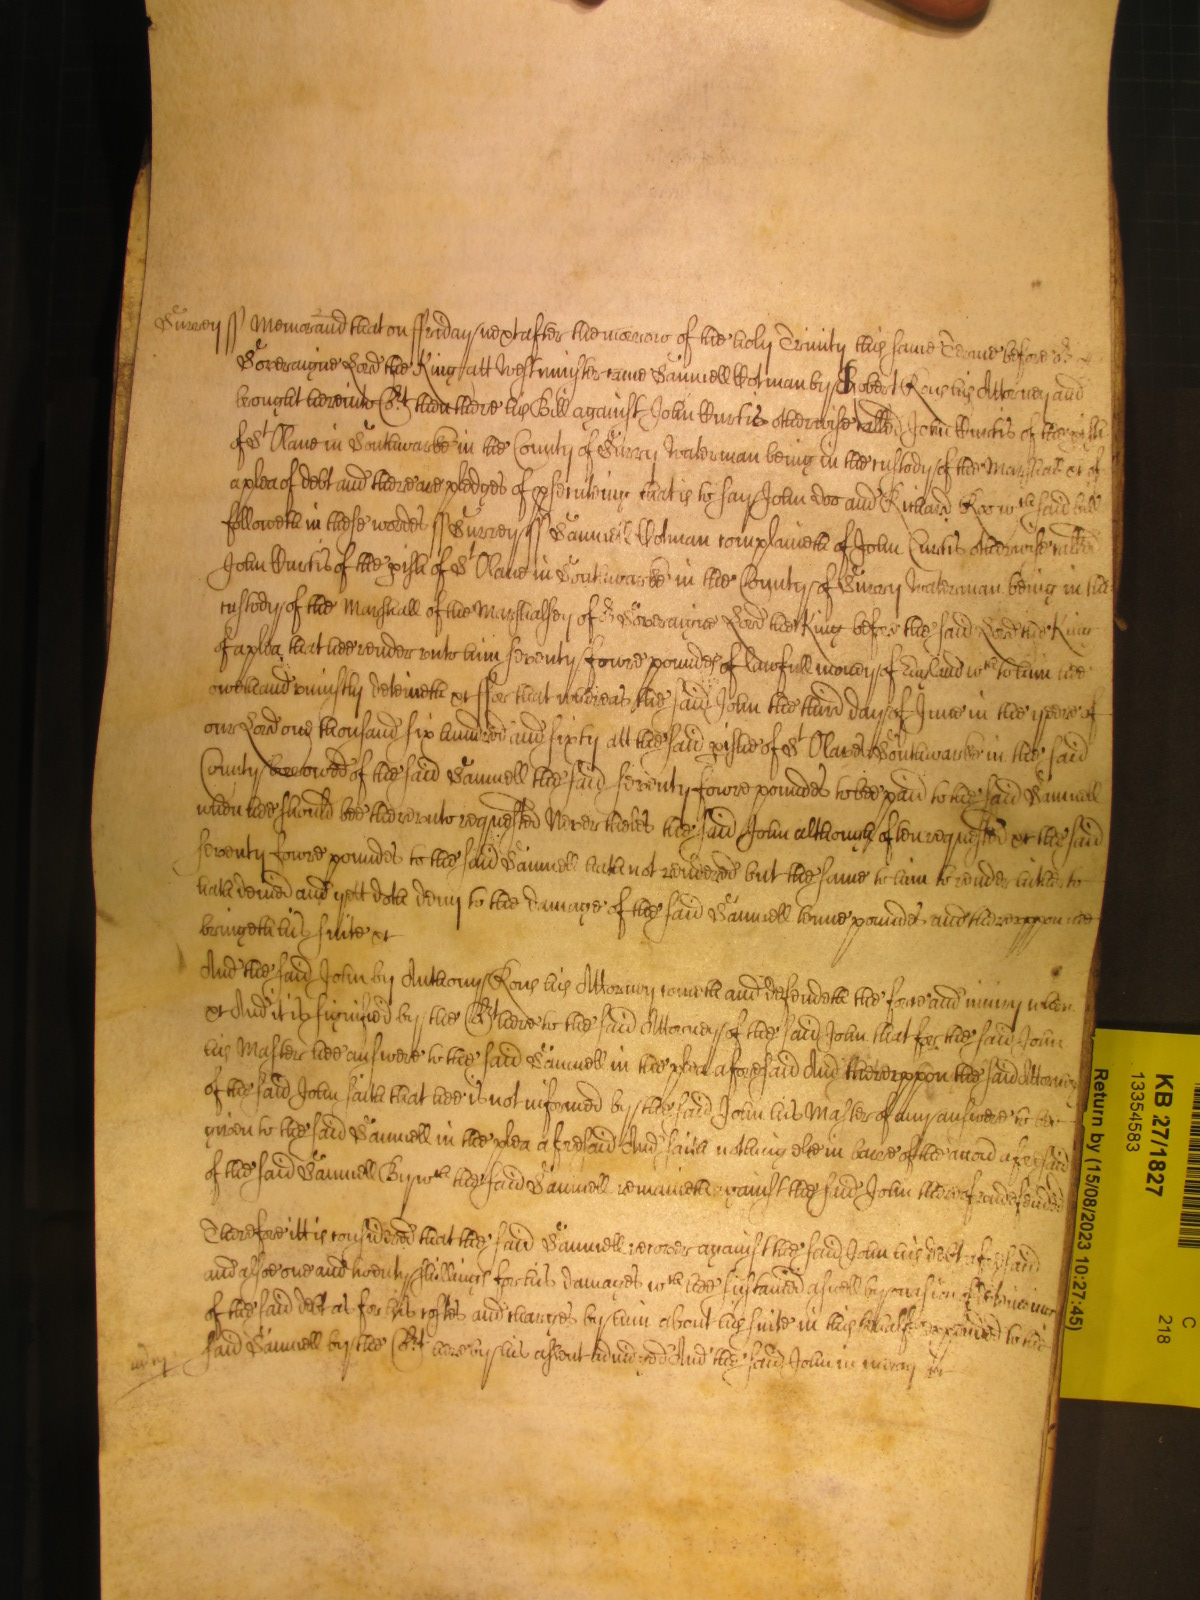 Surrey ss Memorand that on ffriday next after the morrow of the holy Trinity this same Terme before or
Soveraigne Lord the King att Westminster came Samuell Wotman by Robert Kous his Attorney and
brought here into Cort then there his Bill against John Kurtis otherwise called John Kurtis of the pish
of St Olave in Southwarke in the County of Surry Waterman being in the custody of the Marshall &c of
a plea of debt and there are pledges of psecuteing that is to say John Doo and Richard Roo wch said bill
followeth in these wordes ss Surrey ss Samuell Wotman complaineth of John Curtis otherwise called
John Kurtis of the pish of St Olave in Southwarke in the County of Surry Waterman being in the
custody of the Marshall of the Marshalsey of or Soveraigne Lord the King before the said Lord the King
of a plea that hee render unto him seventy fowre poundes of lawfull money of England wch to him hee
oweth and uniustly deteineth &c ffor that whereas the said John the third day of June in the yeere of
our Lord one thousand six hundred and sixty att the said pishe of St Olaves Southwarke in the said
County borrowed of the said Samuell the said seventy fowre poundes to bee paid to the said Samuell
when hee should bee thereunto requested Neverthelес the said John although often requested &c the said
seventy fowre poundes to the said Samuell hath not rendered but the same to him to render hitherto
hath denied and yett doth deny to the damage of the said Samuell tenne poundes and thereuppon hee
bringeth his suite &c
And the said John by Anthony Rous his Attorney cometh and defendeth the force and iniury when
&c And it is signified by the Cort here to the said Attorney of the said John that for the said John
his Master hee answere to the said Samuell in the plea aforesaid And thereuppon the said Attorney
of the said John saith that hee is not informed by the said John his Master of any answere to bee
given to the said Samuell in the plea aforesaid And saith nothing else in barre of the accon aforesaid
of the said Samuell By wch the said Samuell remaineth against the said John thereof undefended
Therefore itt is considered that the said Samuell recover against the said John his debt aforesaid
and alsoe one and twenty shillings for his damages wch hee sustained aswell by occasion of deteineing
of the said debt as for his costes and charges by him about his suite in this behalfe expended to the
said Samuell by the Cort here by his assent adiudged And the said John in mercy &c
mcy
Return by (15/08/2023 10:27:45)
13354583
KB 27/1827
C
218